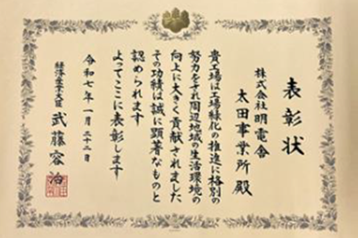 表彰状
株式会社明電舎
太田事業所 殿
貴工場は工場緑化の推進に格別の
努力をされ周辺地域の生活環境の
向上に大きく貢献されました
その功績は誠に顕著なものと
認められます
よってここに表彰します
令和七年一月二十二日
経済産業大臣 武藤容治